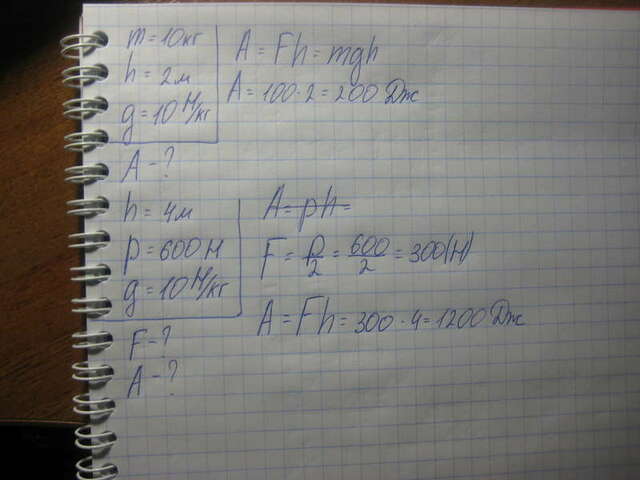 m = 10 кг
h = 2 м
g = 10 Н/кг
A - ?
A = Fh = mgh
A = 100 · 2 = 200 Дж
h = 4 м
p = 600 Н
g = 10 Н/кг
F - ?
A - ?
A = ph =
F = p/2 = 600/2 = 300 (Н)
A = Fh = 300 · 4 = 1200 Дж